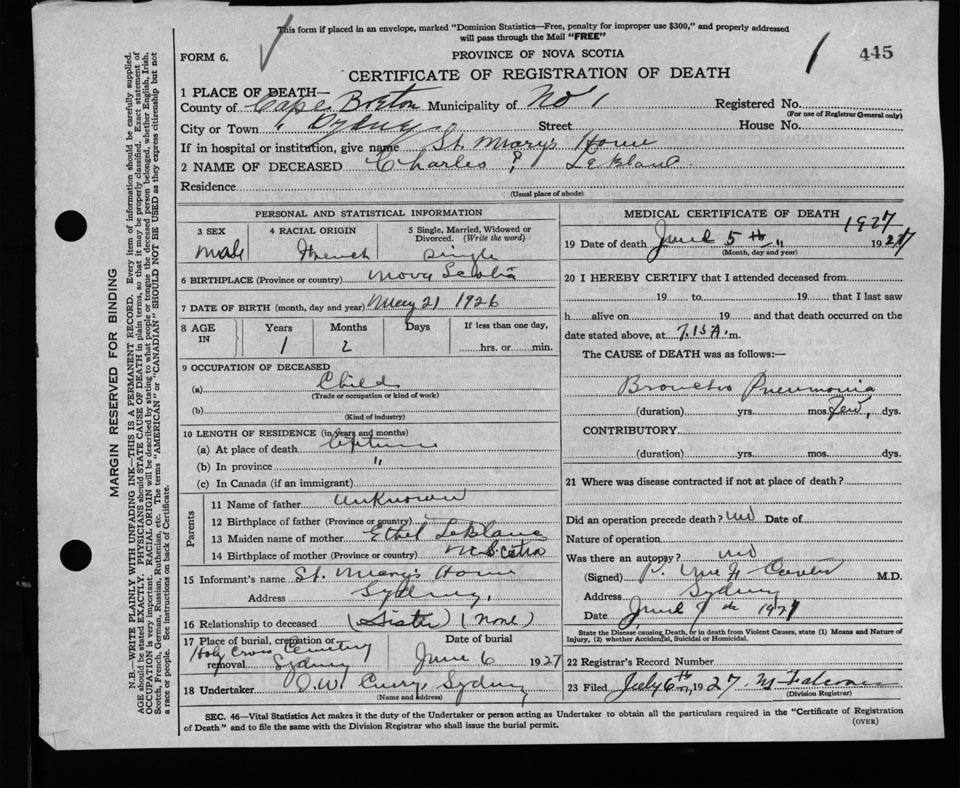 This form if placed in an envelope, marked "Dominion Statistics—Free, penalty for improper use $300," and properly addressed
will pass through the Mail "FREE"
FORM 6.
PROVINCE OF NOVA SCOTIA
1 445
CERTIFICATE OF REGISTRATION OF DEATH
1 PLACE OF DEATH—
County of Cape Breton Municipality of No 1 Registered No.
(For use of Registrar General only)
City or Town Sydney Street House No.
If in hospital or institution, give name St. Mary's Home
2 NAME OF DECEASED Charles P. LeBlanc
Residence
(Usual place of abode)
PERSONAL AND STATISTICAL INFORMATION
3 SEX 4 RACIAL ORIGIN 5 Single, Married, Widowed or
Divorced. (Write the word)
Male French Single
6 BIRTHPLACE (Province or country) Nova Scotia
7 DATE OF BIRTH (month, day and year) May 21 1926
8 AGE IN Years Months Days If less than one day,
1 2 hrs. or min.
9 OCCUPATION OF DECEASED
(a) Child
(Trade or occupation or kind of work)
(b)
(Kind of industry)
10 LENGTH OF RESIDENCE (in years and months)
(a) At place of death Lifetime
(b) In province "
(c) In Canada (if an immigrant)
Parents
11 Name of father Unknown
12 Birthplace of father (Province or country)
13 Maiden name of mother Ethel LeBlanc
14 Birthplace of mother (Province or country) N. Scotia
15 Informant's name St. Mary's Home
Address Sydney,
16 Relationship to deceased (Sister) (None)
17 Place of burial, cremation or removal Date of burial
Holy Cross Cemetery
Sydney June 6 1927
18 Undertaker Sydney
(Name and address)
MEDICAL CERTIFICATE OF DEATH
1927
19 Date of death June 5th " 1927
(Month, day and year)
20 I HEREBY CERTIFY that I attended deceased from
19 to 19 that I last saw
h alive on 19 and that death occurred on the
date stated above, at 7.15 A. m.
The CAUSE of DEATH was as follows:—
Broncho Pneumonia
(duration) yrs. mos. Few, dys.
CONTRIBUTORY
(duration) yrs. mos. dys.
21 Where was disease contracted if not at place of death?
Did an operation precede death? no Date of
Nature of operation
Was there an autopsy? no
(Signed) M.D.
Address Sydney
Date June 7th 1927
State the Disease causing Death, or in death from Violent Causes, state (1) Means and Nature of
Injury, (2) whether Accidental, Suicidal or Homicidal.
22 Registrar's Record Number
23 Filed July 6th, 1927
(Division Registrar)
SEC. 46—Vital Statistics Act makes it the duty of the Undertaker or person acting as Undertaker to obtain all the particulars required in the "Certificate of Registration
of Death" and to file the same with the Division Registrar who shall issue the burial permit.
(OVER)
MARGIN RESERVED FOR BINDING
N.B. WRITE PLAINLY WITH UNFADING INK—THIS IS A PERMANENT RECORD. Every item of information should be carefully supplied.
AGE should be stated EXACTLY. PHYSICIANS should STATE CAUSE OF DEATH in plain terms, so that it may be properly classified. Exact statement of
OCCUPATION is very important. RACIAL ORIGIN will be described by stating to what people or tongue the deceased person belonged, whether English, Irish,
Scotch, French, German, Russian, Ruthenian, etc. The terms "AMERICAN" or "CANADIAN" SHOULD NOT BE USED as they express citizenship but not
a race or people. See instructions on back of Certificate.